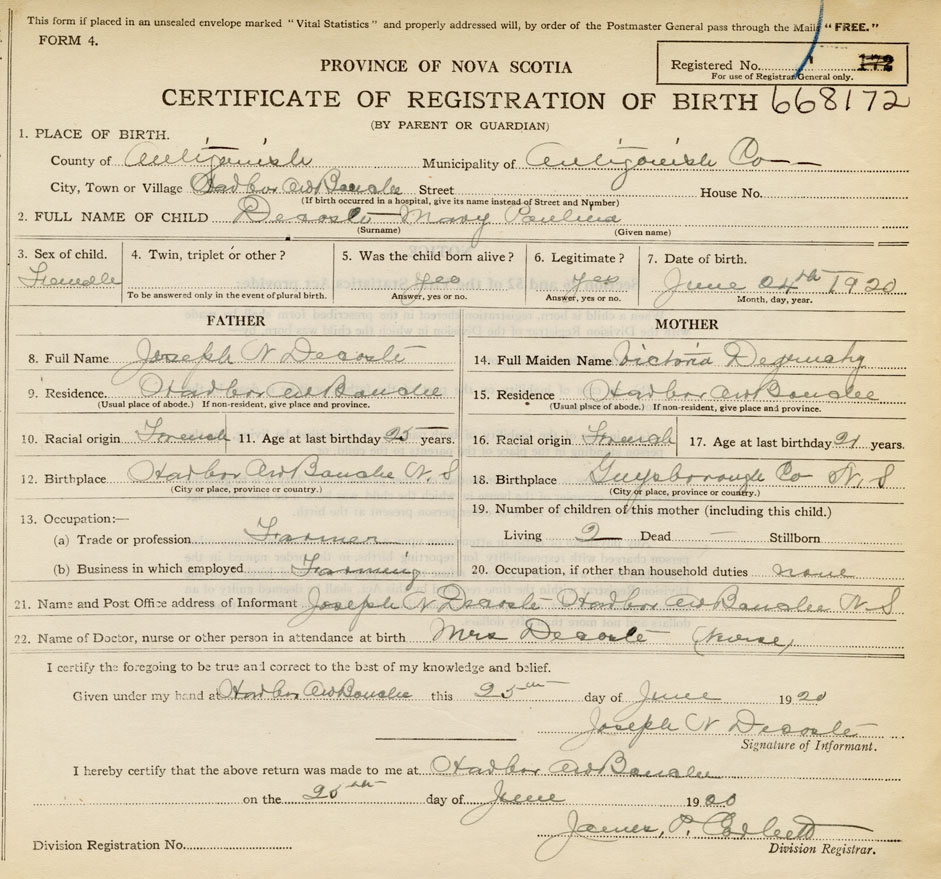 This form if placed in an unsealed envelope marked "Vital Statistics" and properly addressed will, by order of the Postmaster General pass through the Mails "FREE."
FORM 4.
Registered No. 172
For use of Registrar General only.
PROVINCE OF NOVA SCOTIA
CERTIFICATE OF REGISTRATION OF BIRTH 668172
(BY PARENT OR GUARDIAN)
1. PLACE OF BIRTH.
County of Antigonish Municipality of Antigonish Co
City, Town or Village Harbor Au Bouche Street House No.
(If birth occurred in a hospital, give its name instead of Street and Number)
2. FULL NAME OF CHILD Decoste Mary Paulina
(Surname) (Given name)
3. Sex of child. 4. Twin, triplet or other? 5. Was the child born alive? 6. Legitimate? 7. Date of birth.
Female Yes Yes June 24th 1920
To be answered only in the event of plural birth. Answer, yes or no. Answer, yes or no. Month, day, year.
FATHER MOTHER
8. Full Name Joseph N Decoste 14. Full Maiden Name Victoria
9. Residence. Harbor Au Bouche 15. Residence Harbor Au Bouche
(Usual place of abode.) If non-resident, give place and province. (Usual place of abode.) If non-resident, give place and province.
10. Racial origin French 11. Age at last birthday 25 years. 16. Racial origin French 17. Age at last birthday 21 years.
12. Birthplace Harbor Au Bouche N. S 18. Birthplace Guysborough Co N. S
(City or place, province or country.) (City or place, province or country.)
13. Occupation:— 19. Number of children of this mother (including this child.)
(a) Trade or profession Farmer Living 2 Dead — Stillborn
(b) Business in which employed Farming 20. Occupation, if other than household duties none
21. Name and Post Office address of Informant Joseph N Decoste Harbor Au Bouche N S
22. Name of Doctor, nurse or other person in attendance at birth Mrs Decoste (Nurse)
I certify the foregoing to be true and correct to the best of my knowledge and belief.
Given under my hand at Harbor Au Bouche this 25th day of June 1920
Joseph N Decoste
Signature of Informant.
I hereby certify that the above return was made to me at Harbor Au Bouche
on the 25th day of June 1920
James. P. Corbett
Division Registration No. Division Registrar.